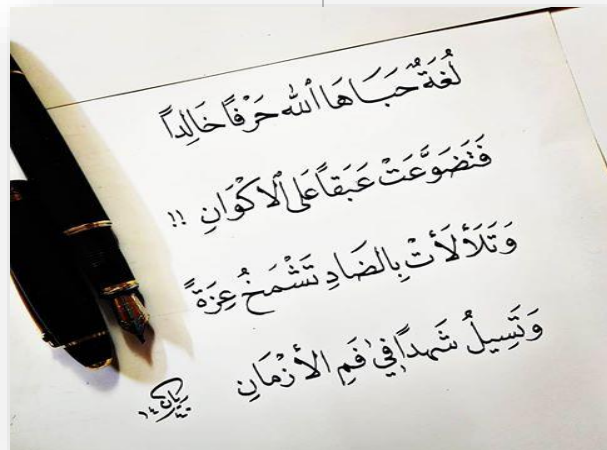 لُغَةٌ حَبَاهَا ٱللهُ حَرْفًا خَالِدًا
فَتَضَوَّعَتْ عَبَقًا عَلَى ٱلْأَكْوَانِ !!
وَتَلَأْلَأَتْ بِالضَّادِ تَشْمَخُ عِزَّةً
وَتَسِيلُ شَهْدًا فِي فَمِ الأَزْمَانِ